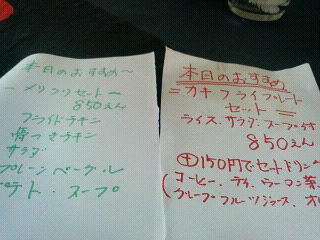 本日のおすすめ〜
ー メリクリセット〜
850えん
フライドチキン
骨つきチキン
サラダ
プレーンベーグル
ポテト・スープ
本日のおすすめ
＝カキフライプレート
セット＝
ライス・サラダ・スープ付
850えん
⊕150円でセットドリン
(コーヒー、ティ、ウーロン茶、
グレープフルーツジュース、オ